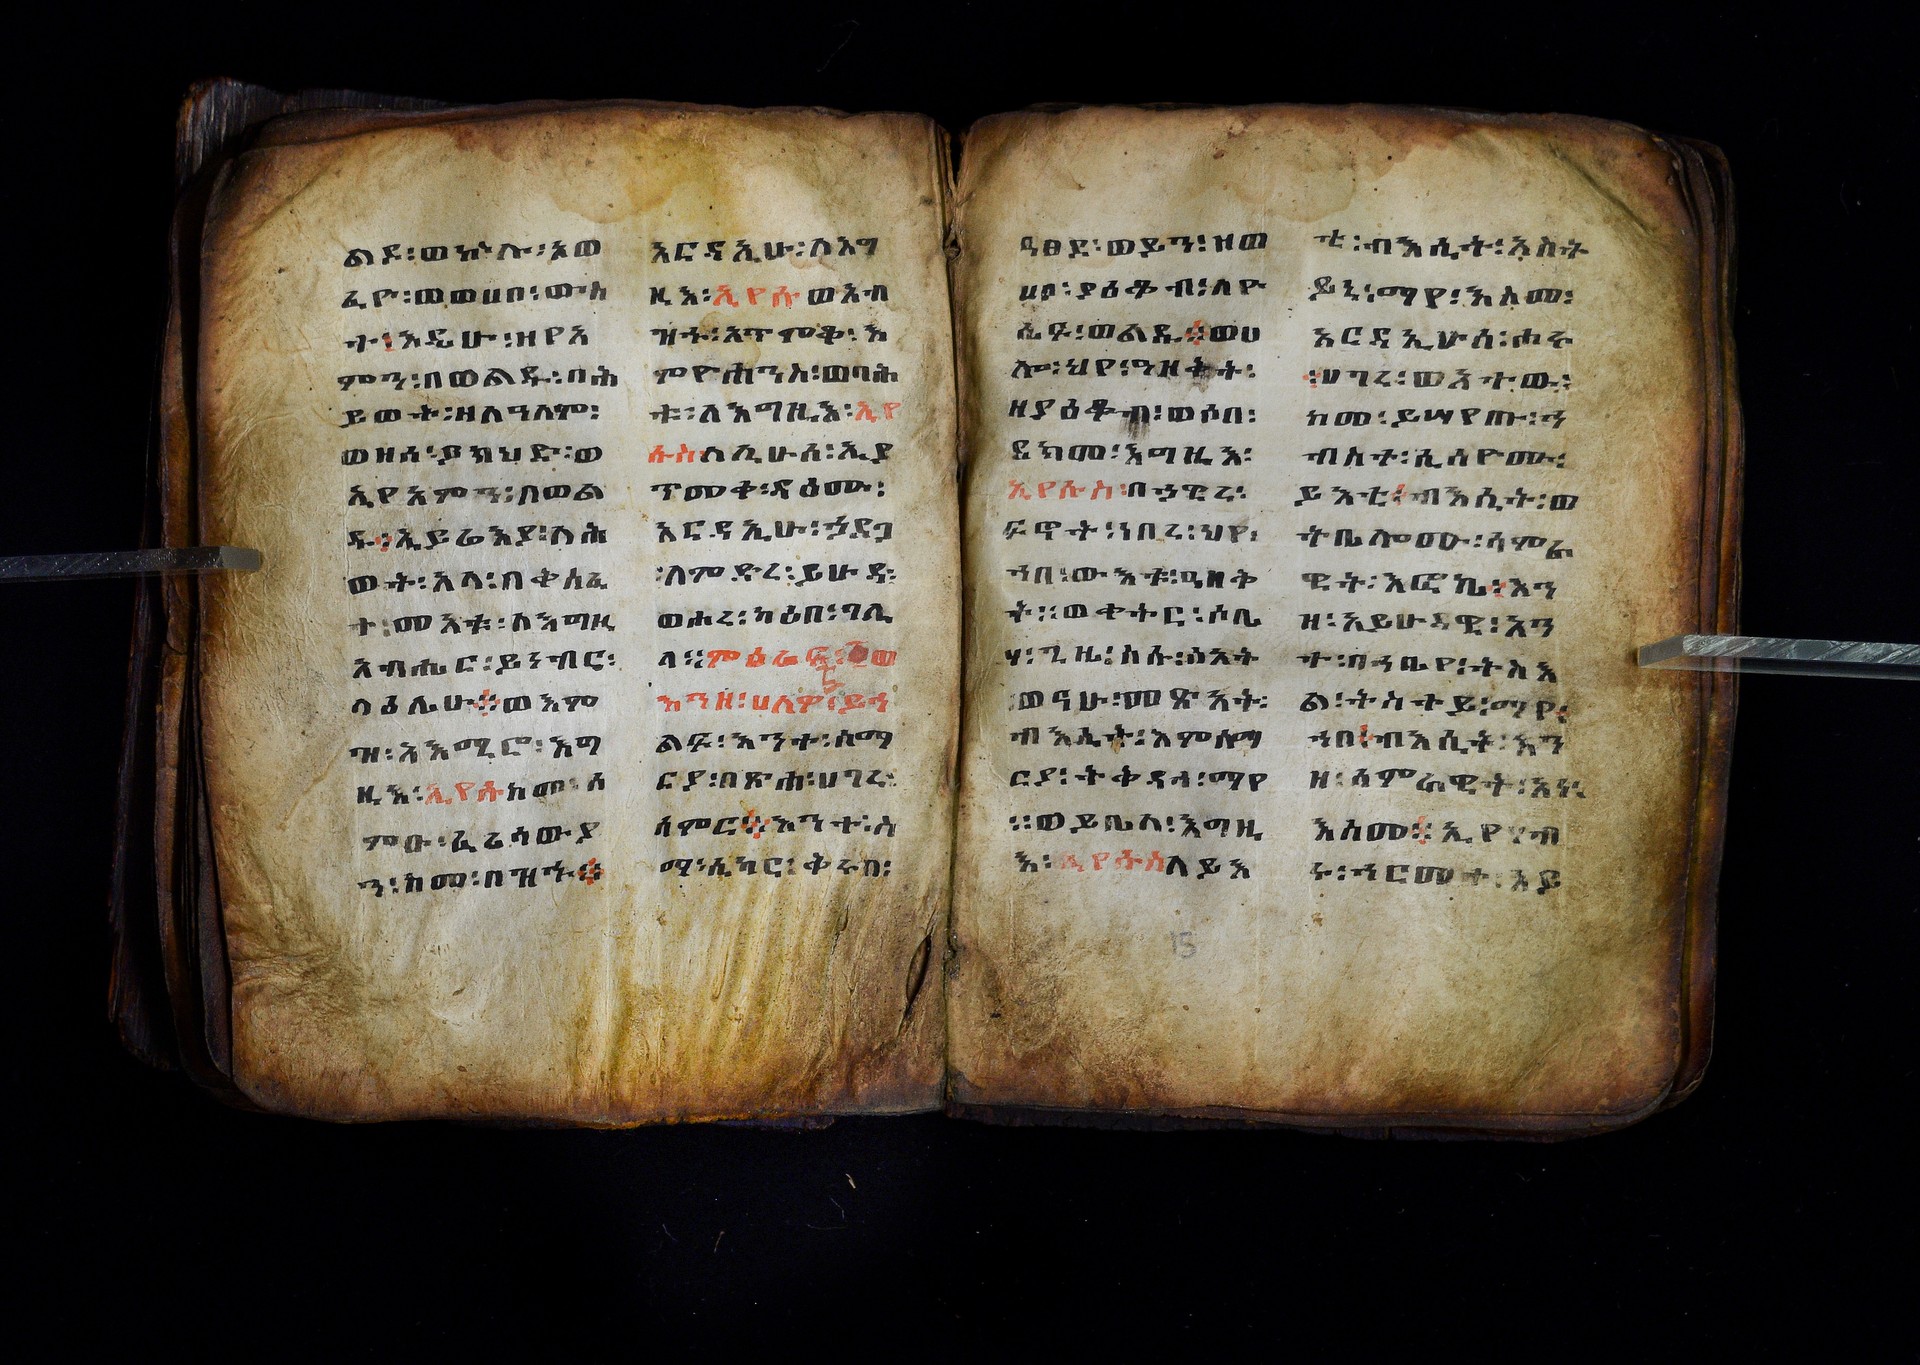 ልዶ፡ወኵሉ፡አወ
ፈዮ፡ወመጠወ፡ውስ
ተ፡እዴሁ፡ዘየአ
ምን፡በወልድ፡ቦሕ
ይወት፡ዘለዓለም፡
ወዘሰ፡ይክህድ፡ወ
ኢየአምን፡በወል
ዱ፡ኢይሬእያ፡ለሕ
ይወት፡አላ፡በቀሰፈ
ተ፡መአቱ፡ለእግዚ
አብሔር፡ይነብር፡
ላዕሌሁ፡ወእም
ዝ፡አእሚሮ፡እግ
ዚእ፡ኢየሱስ፡ከመ፡ሰ
ምዑ፡ፈሪሳውያ
ን፡ከመ፡በዝኁ፡
አርዳኢሁ፡ለእግ
ዚእ፡ኢየሱስ፡ወአብ
ዝኁ፡አጥምቆ፡እ
ምዮሐንስ፡ወባሕ
ቱ፡ለእግዚእ፡ኢየ
ሱስ፡ለሊሁሰ፡ኢያ
ጥመቀ፡ዳዕሙ፡
አርዳኢሁ፡ኃደጋ
፡ለምድረ፡ይሁዳ፡
ወሐረ፡ካዕበ፡ገሊ
ላ፡፡ምዕራፍ
እንዘ፡ሀለዎ፡ይኅ
ልፍ፡እንተ፡ሰማ
ርያ፡በጽሐ፡ሀገረ፡
ሳምር፡እንተ፡ስ
ማ፡ሲካር፡ቅሩበ፡
ዓፀደ፡ወይን፡ዘወ
ሀቦ፡ያዕቆብ፡ለዮ
ሴፍ፡ወልዱ፡ወሀ
ሎ፡ህየ፡ዓዘቅት፡
ዘያዕቆብ፡ወሶበ፡
ደክመ፡እግዚእ፡
ኢየሱስ፡በኃዊረ፡
ፍኖት፡ነበረ፡ህየ፡
ኀበ፡ውእቱ፡ዓዘቅ
ት፡፡ወቀትር፡ሶቤ
ሃ፡ጊዜ፡ስሱ፡ሰአት
፡ወናሁ፡መጽአት፡
ብእሲት፡እምሰማ
ርያ፡ትቅዳሕ፡ማየ
፡፡ወይቤላ፡እግዚ
እ፡ኢየሱስ፡ለይእ
ቲ፡ብእሲት፡አስት
ይኒ፡ማየ፡እስመ፡
አርዳኢሁሰ፡ሐሩ
፡ሀገረ፡ወአተዉ፡
ከመ፡ይሣየጡ፡ኅ
ብስተ፡ሲሳዮሙ፡
ይእቲ፡ብእሲት፡ወ
ትቤሎሙ፡ሳምራ
ዊት፡እፎኬ፡እን
ዘ፡አይሁዳዊ፡አን
ተ፡በኀቤየ፡ትስእ
ል፡ትስተይ፡ማየ፡
ኀበ፡ብእሲት፡እን
ዘ፡ሳምራዊት፡አነ፡
እስመ፡ኢየኀብ
ሩ፡ኅርመተ፡አይ
15